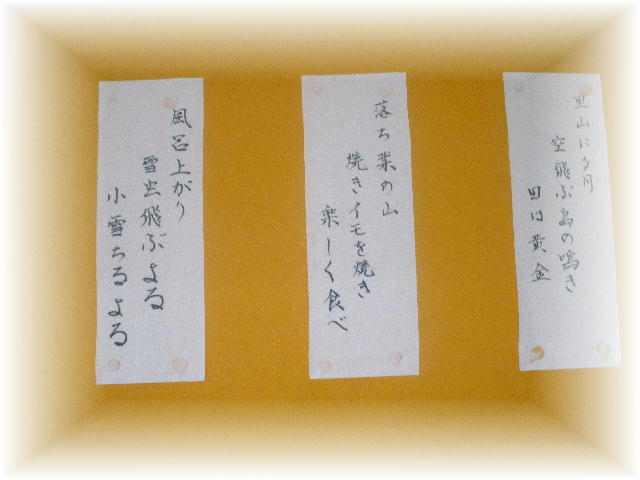 里山に夕月
空飛ぶ鳥の鳴き
田は黄金
落ち葉の山
焼きイモを焼き
楽しく食べ
風呂上がり
雪虫飛ぶよる
小雪ちるよる